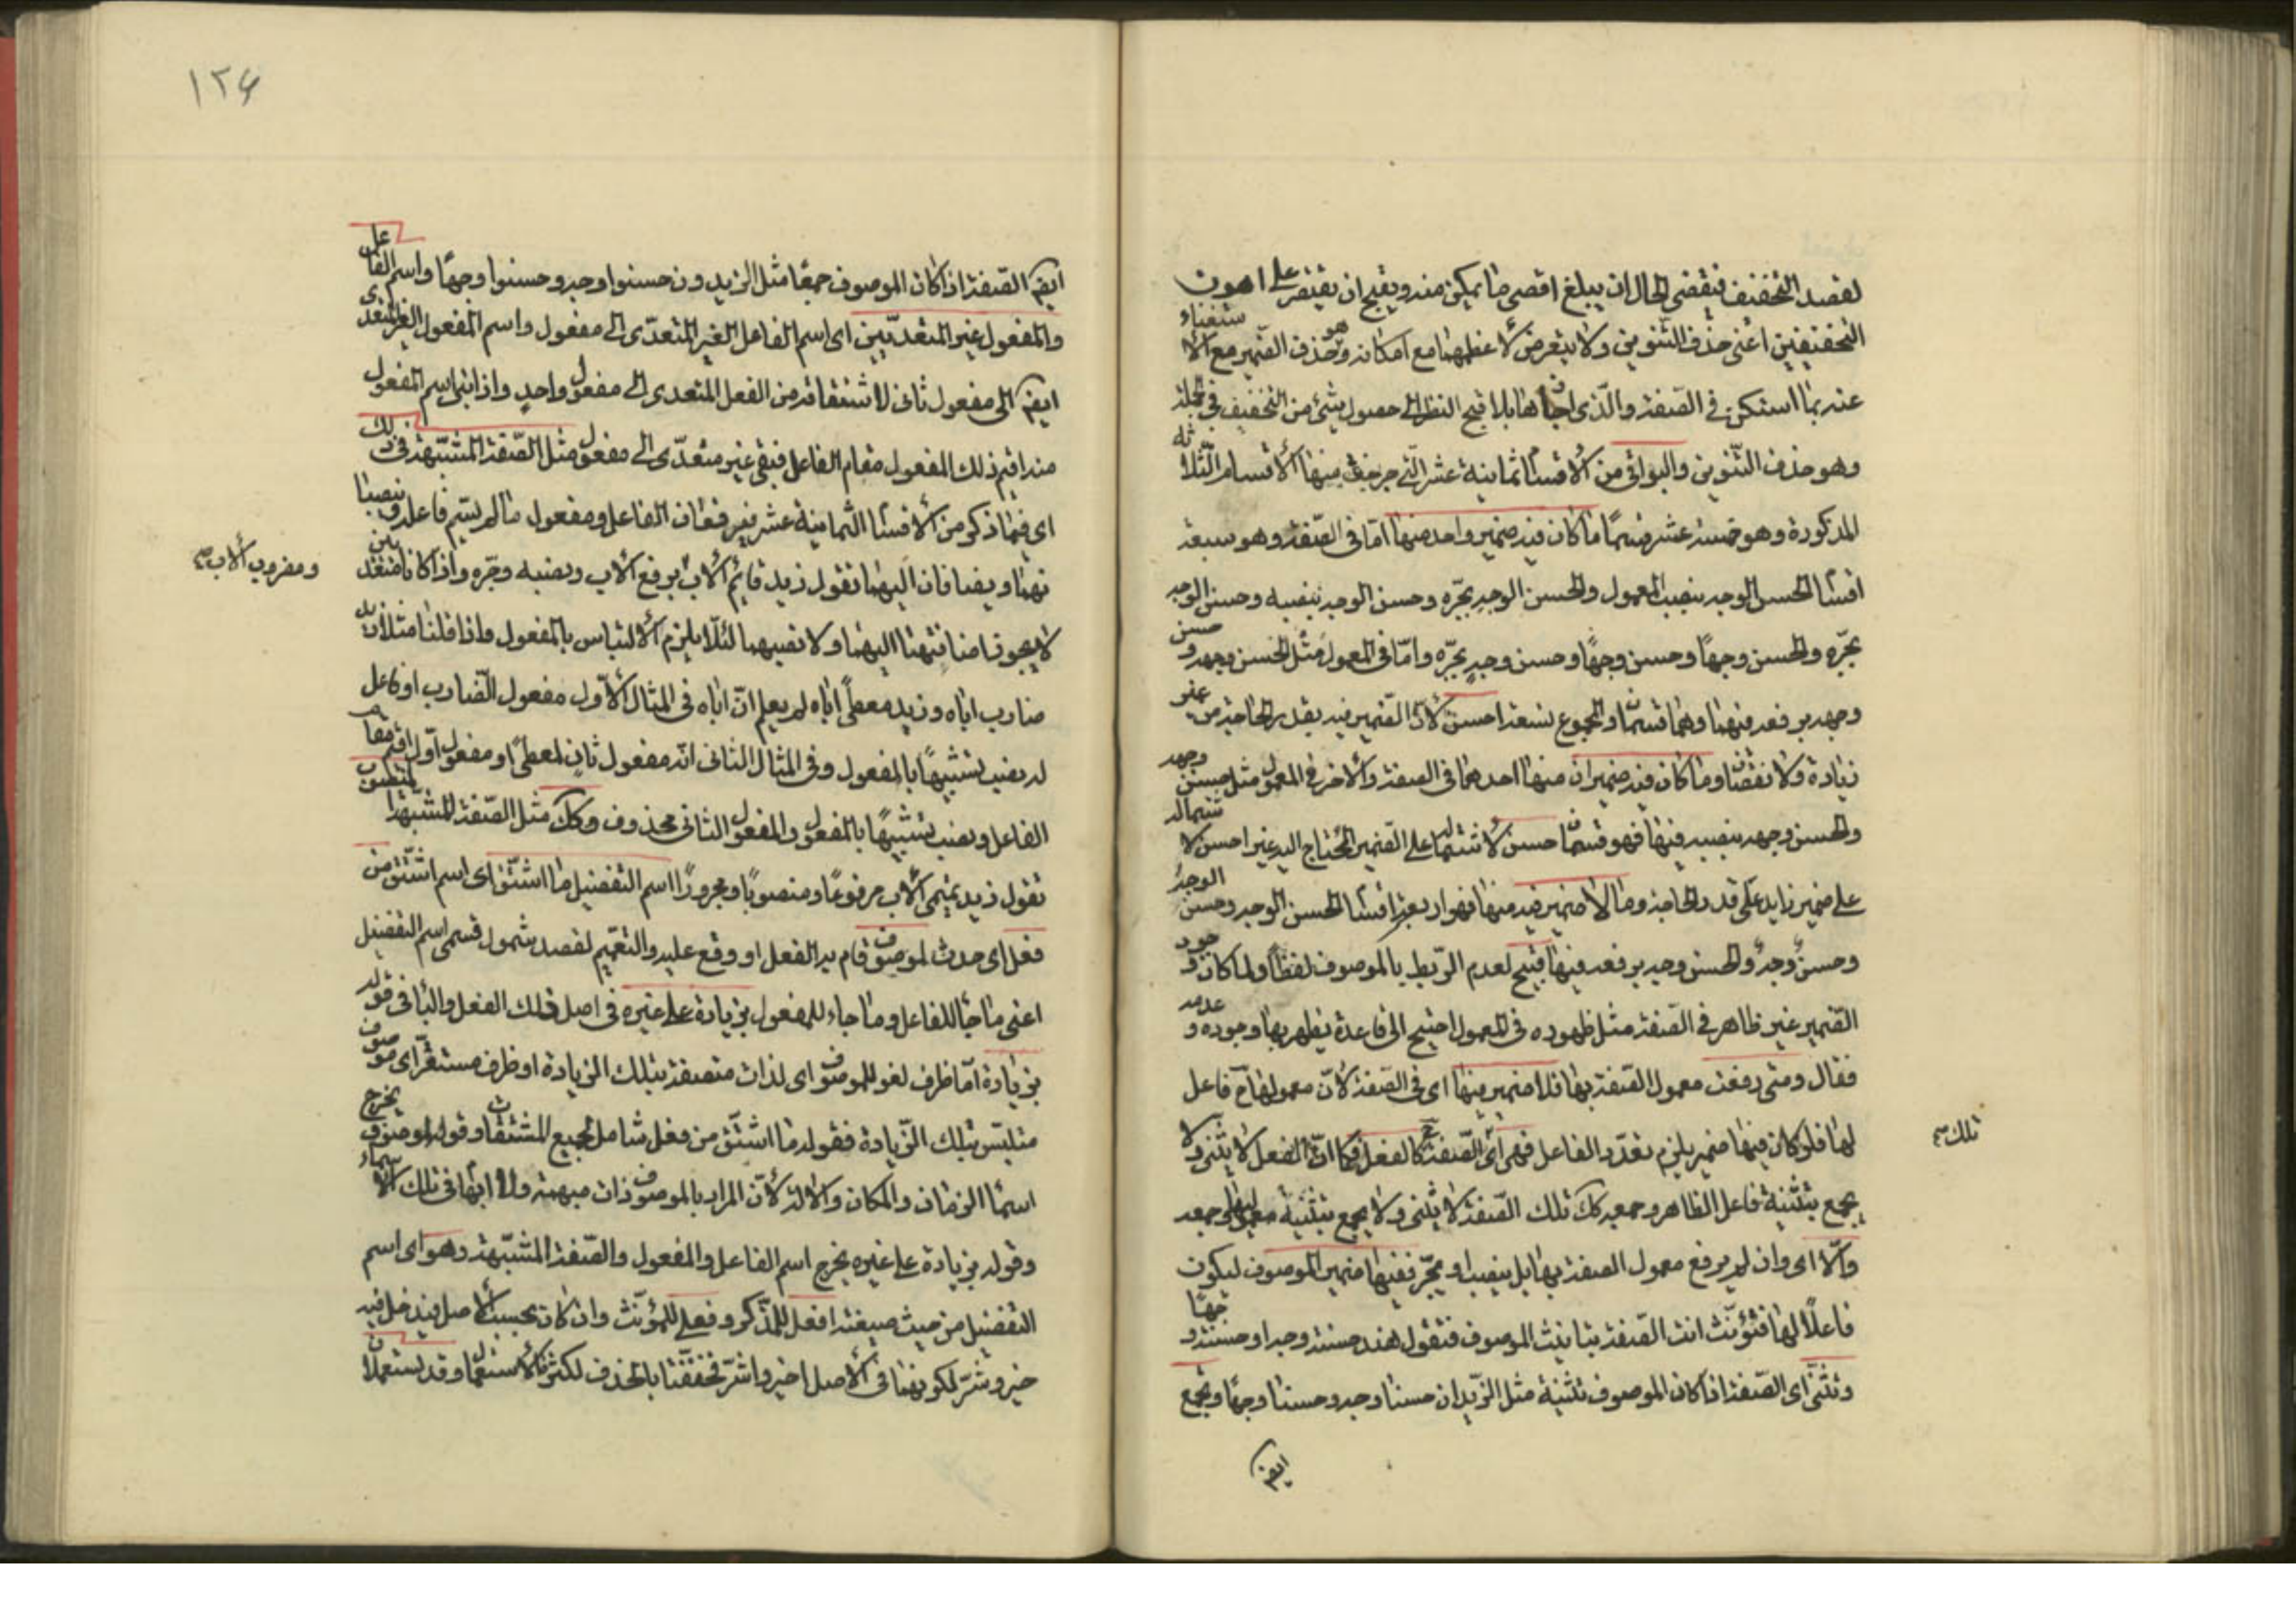 لقصد التخفيف فيقتضى الحال ان يبلغ اقصى ما يمكن منه ويقبح ان يقتصر على اهون
التخفيفين اعنى حذف التنوين ولا يتعرض لاعظمهما مع امكانه وهو حذف الضمير مع الاستغناء
عنه بما استكن فى الصفة والذى اجازها بلا قبح النظر الى حصول شئ من التخفيف فى الجملة
وهو حذف التنوين والبواقى من الاقسام الثمانية عشر التى خرجت منها الاقسام الثلاثة
المذكورة وهو خمسة عشر قسمًا ما كان فيه ضمير واحد منها اما فى الصفة وهو سبعة
اقسام الحسن الوجه بنصب المعمول والحسن الوجهِ بجرّه وحسن الوجه بنصبه وحسن الوجه
بجرّه والحسن وجهًا وحسن وجهًا وحسن وجهٍ بجرّه وامّا فى المعمول مثل الحسن وجهه وحسن
وجهه برفعه فيهما وهما قسمان والمجموع تسعة احسن لانّ الضمير فيه بقدر الحاجة من غير
زيادة ولا نقصان وما كان فيه ضميران منها احدهما فى الصفة والاخر فى المعمول مثل حسن وجهه
والحسن وجهه بنصبه فيهما فهو قسمان حسن لاشتماله على الضمير المحتاج اليه غير احسن لاشتماله
على ضمير زايد على قدر الحاجة وما لا ضمير فيه منها فهو اربعة اقسام الحسن الوجه وحسن الوجهُ
وحسنٌ وجهٌ والحسن وجه برفعه فيها قبيح لعدم الربط بالموصوف لفظًا ولما كان وجود
الضمير غير ظاهر فى الصفة مثل ظهوره فى المعمول احتيج الى قاعدة يظهر بها وجوده وعدمه
فقال ومتى رفعت معمول الصفة بها فلا ضمير فيها اى فى الصفة لانّ معمولها ح فاعل
لها فلو كان فيها ضمير يلزم تعدّد الفاعل فهى اى الصفة ح كالفعل فكما انّ الفعل لا يثنى ولا
يجمع بتثنية فاعل الظاهر وجمعه كك تلك الصفة لا يثنى ولا يجمع بتثنية معمولها وجمعه
والّا اى وان لم يرفع معمول الصفة بها بل ينصب او يجرّ ففيها ضمير الموصوف ليكون
فاعلًا لها فتؤنّث انت الصفة بتانيث الموصوف فتقول هند حسنة وجه او حسنة وجهًا
وتثنّى اى الصفة اذا كان الموصوف تثنية مثل الزيدان حسنا وجه وحسنا وجهًا وتجمع
تلك صح
ايضًا
١٢٤
ايضًا الصفة اذا كان الموصوف جمعًا مثل الزيدون حسنوا وجه وحسنوا وجهًا واسم الفاعل
والمفعول غير المتعديين اى اسم الفاعل الغير المتعدّى الى مفعول واسم المفعول الغير المتعدى
ايضًا الى مفعول ثان لاشتقاقه من الفعل المتعدى الى مفعول واحدٍ واذا بنى اسم المفعول
منه اقيم ذلك المفعول مقام الفاعل فبقى غير متعدّى الى مفعول مثل الصفة المشبّهة فى ذلك
اى فيما ذكر من الاقسام الثمانية عشر فيرفعان الفاعل ومفعول ما لم يسمّ فاعله وينصبا
نهما ويضافان اليهما تقول زيد قائم الاب برفع الاب ونصبه وجرّه واذا كانا متعديين
لا يجوز اضافتهما اليهما ولا نصبهما لئلّا يلزم الالتباس بالمفعول واذا قلنا مثلا زيد
ضارب اباه وزيد معطًى اباه لم يعلم انّ اباه فى المثال الاوّل مفعول الضارب او فاعل
له نصب تشبيهًا بالمفعول وفى المثال الثانى انّه مفعول ثانٍ لمعطًى او مفعول اوّل اقيم مقام
الفاعل ونصب تشبيهًا بالمفعول والمفعول الثانى محذوف وكك مثل الصفة المشبّهة المنسوب
تقول زيد تميمى الاب مرفوعًا ومنصوبًا ومجرورًا اسم التفضيل ما اشتقّ اى اسم اشتقّ من
فعل اى حدث لموصوف قام به الفعل او وقع عليه والتعميم لقصد شمول قسمى اسم التفضيل
اعنى ما جاء للفاعل وما جاء للمفعول بزيادة على غيره فى اصل ذلك الفعل والبا فى قوله
بزيادة اما ظرف لغو للموصوف اى لذات متصفة بتلك الزيادة او ظرف مستقرّ اى موصوف
متلبّس بتلك الزيادة فقوله ما اشتقّ من فعل شامل لجميع المشتقات وقوله لموصوف يخرج
اسماء الزمان والمكان والالة لانّ المراد بالموصوف ذات مبهمة ولا ابهام فى تلك الاسماء
وقوله بزيادة على غيره يخرج اسم الفاعل والمفعول والصفة المشبّهة وهو اى اسم
التفضيل من حيث صيغته افعل للمذكر وفعلى للمؤنّث وان كان بحسب الاصل فيدخل فيه
خير وشرّ لكونهما فى الاصل اخير واشرّ فخففتا بالحذف لكثرة الاستعمال وقد يستعملان
ومضروب الاب صح